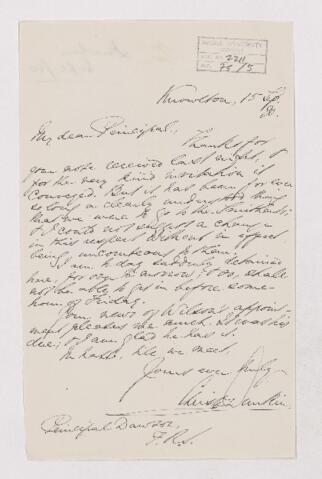 McGILL UNIVERSITY
ARCHIVES
ACC. NO. 2211
REF. 73/5
Knowlton, 15 Sep.
90.
My dear Principal,
Thanks for
your note received last night, &
for the very kind invitation it
conveyed. But it has been for ever
so long a clearly understood thing
that we were to go to the
& I could not suggest a change
in this respect without in effect
being uncourteous to them.
I am to-day suddenly detained
here, for my to-morrow, & so, shall
not be able to get in before some
hour of Friday.
Your news of appoint-
ment pleases me much. It was his
due; & I am glad he has it.
In haste, till we meet,
Yours ever truly
Principal Dawson,
F.R.S.